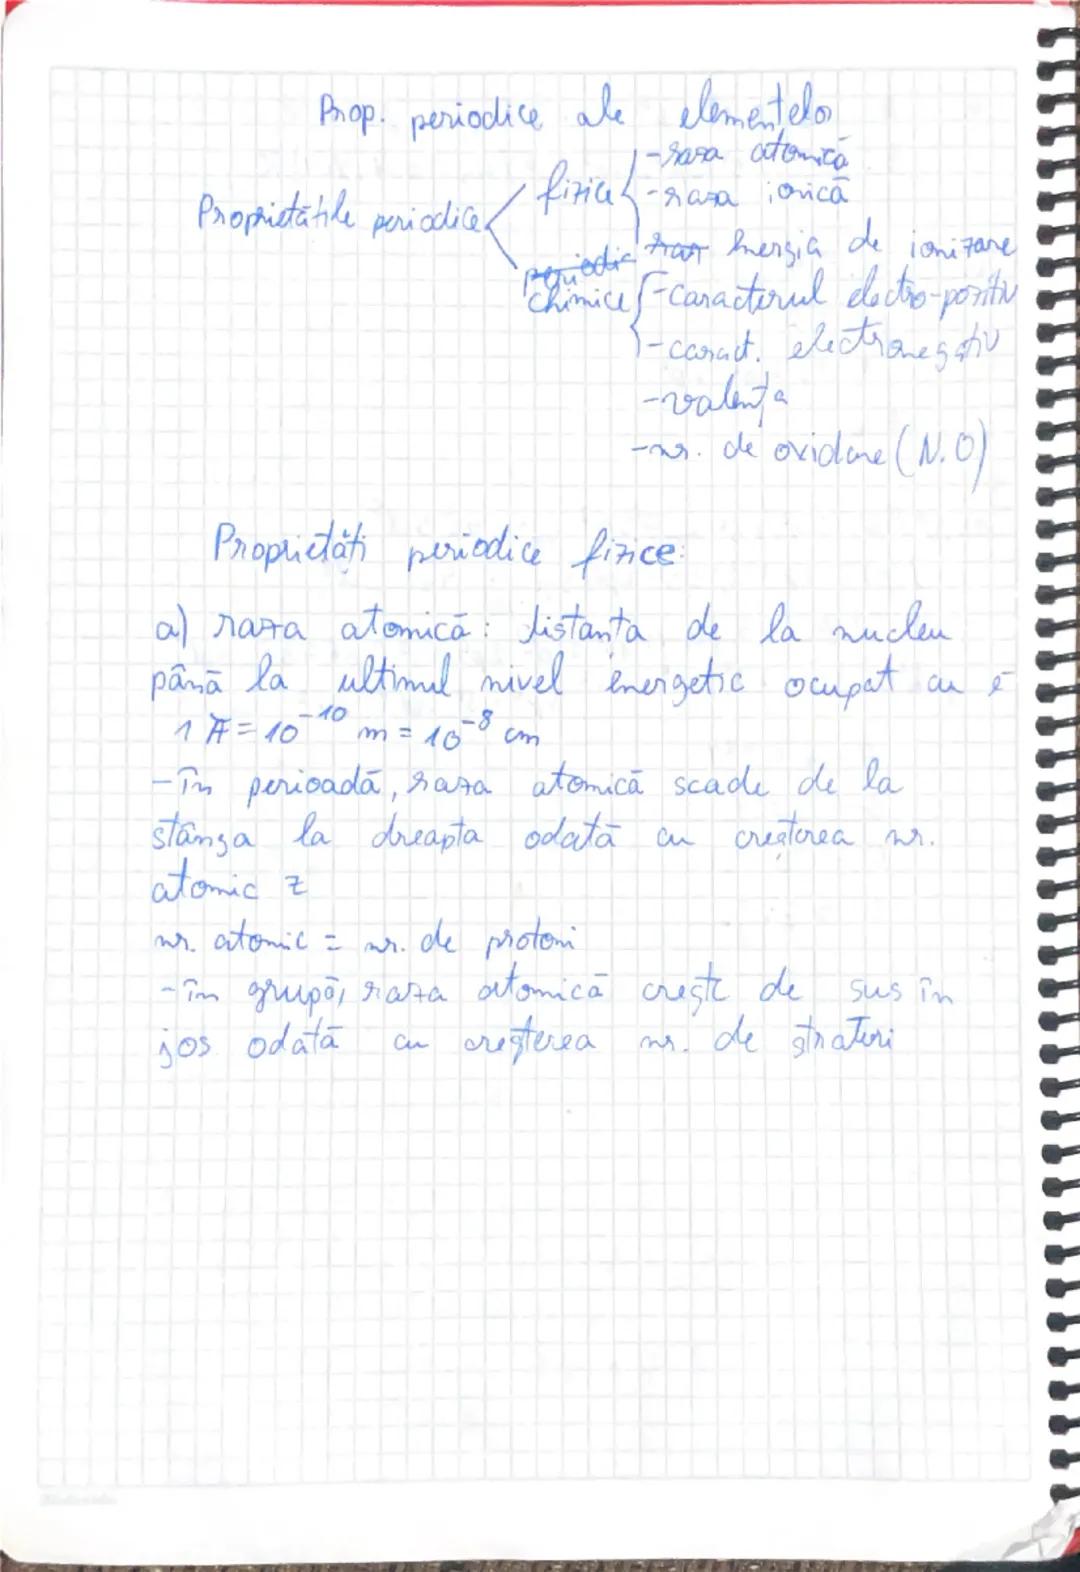 Prop. periodice ale elementelor
Proprietățile periodice
fizice
-raza atomică
-raza ionică
Energia de ionizare
periodic
chimice
-caracterul electro-pozitiv
-caract. electronegativ
-valența
-nr. de oxidare (N.O)
Proprietăți periodice fizice:
a) raza atomică: distanța de la nucleu
până la ultimul nivel energetic ocupat cu e⁻
1 Å = 10⁻¹⁰ m = 10⁻⁸ cm
-în perioadă, raza atomică scade de la
stânga la dreapta odată cu creșterea nr.
atomic z
nr. atomic = nr. de protoni
-în grupă, raza atomică crește de sus în
jos odată cu creșterea nr. de straturi